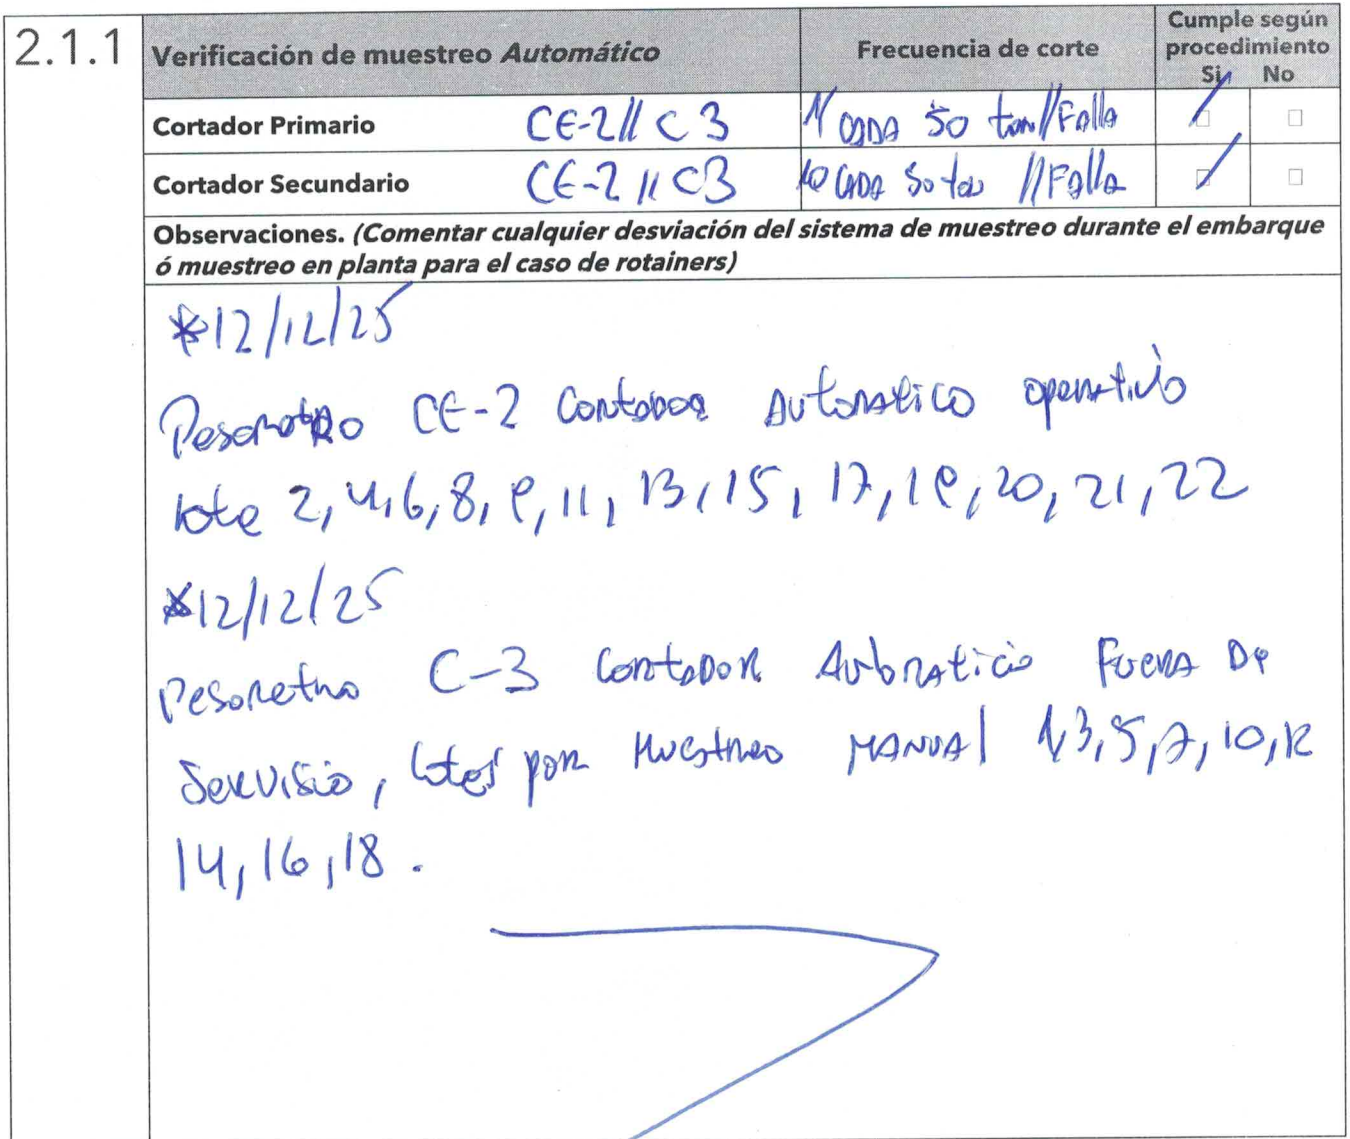 2.1.1
Verificación de muestreo Automático Frecuencia de corte Cumple según procedimiento
Si No
Cortador Primario CE-2 // C3 1 CADA 50 ton // Falla
Cortador Secundario CE-2 // C3 10 CADA 50 ton // Falla
Observaciones. (Comentar cualquier desviación del sistema de muestreo durante el embarque
ó muestreo en planta para el caso de rotainers)
*12/12/25
Pesometro CE-2 Cortador Automatico operativo
lote 2, 4, 6, 8, 9, 11, 13, 15, 17, 19, 20, 21, 22
*12/12/25
Pesometro C-3 Cortador Automatico Fuera De
Servisio, lotes por Muestreo MANUAl 1, 3, 5, 7, 10, 12
14, 16, 18.